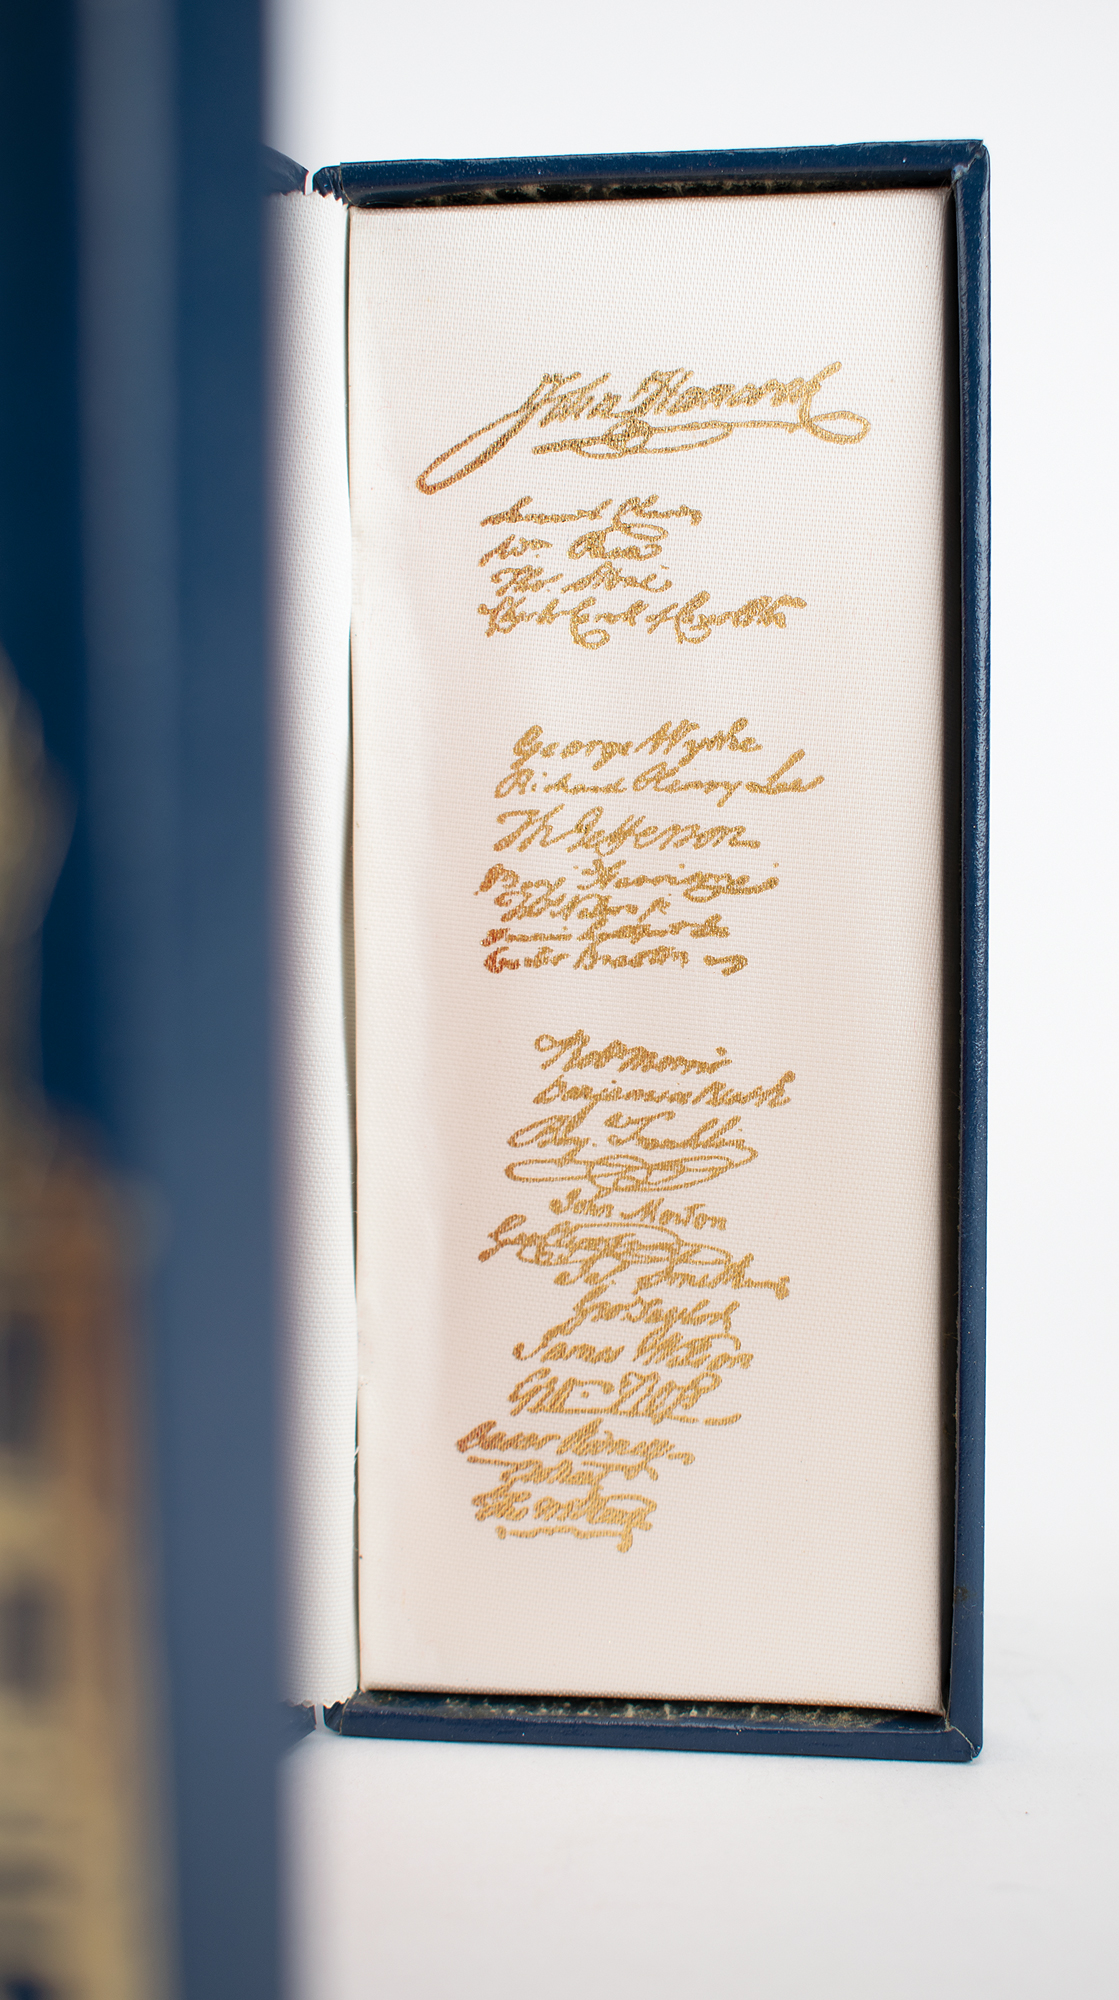 John Hancock
Samuel Chase
Wm. Paca
Thos. Stone
Charles Carroll of Carrollton
George Wythe
Richard Henry Lee
Th Jefferson
Benj. Harrison
Thos Nelson jr.
Francis Lightfoot Lee
Carter Braxton
Robt Morris
Benjamin Rush
Benj. Franklin
John Morton
Geo Clymer
Jas. Smith
Geo. Taylor
James Wilson
Geo. Ross
Caesar Rodney
Geo Read
Tho M:Kean